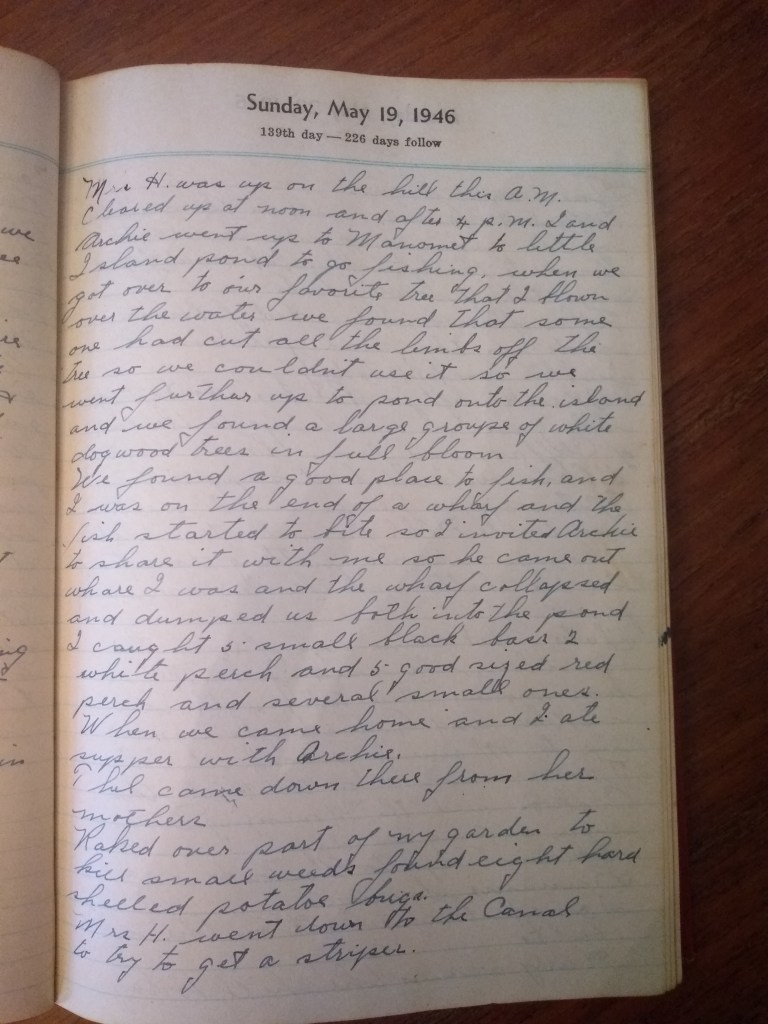 Sunday, May 19, 1946
139th day — 226 days follow
Mrs H. was up on the hill this A.M.
Cleared up at noon and after 4 p.m. I and
Archie went up to Manomet to little
Island pond to go fishing, when we
got over to our favorite tree that
over the water we found that some
one had cut all the limbs off the
tree so we couldn't use it so we
went further up to pond onto the island
and we found a large groupe of white
dogwood trees in full bloom
We found a good place to fish, and
I was on the end of a wharf and the
fish started to bite so I invited Archie
to share it with me so he came out
whare I was and the wharf collapsed
and dumped us both into the pond
I caught 5 small black bass 2
white perch and 5 good sized red
perch and several small ones.
When we came home and I ate
supper with Archie.
came down there from her
mothers
Raked over part of my garden to
kill small weeds found eight hard
shelled potatoe bugs.
Mrs H. went down to the Canal
to try to get a striper.
we
ing
in